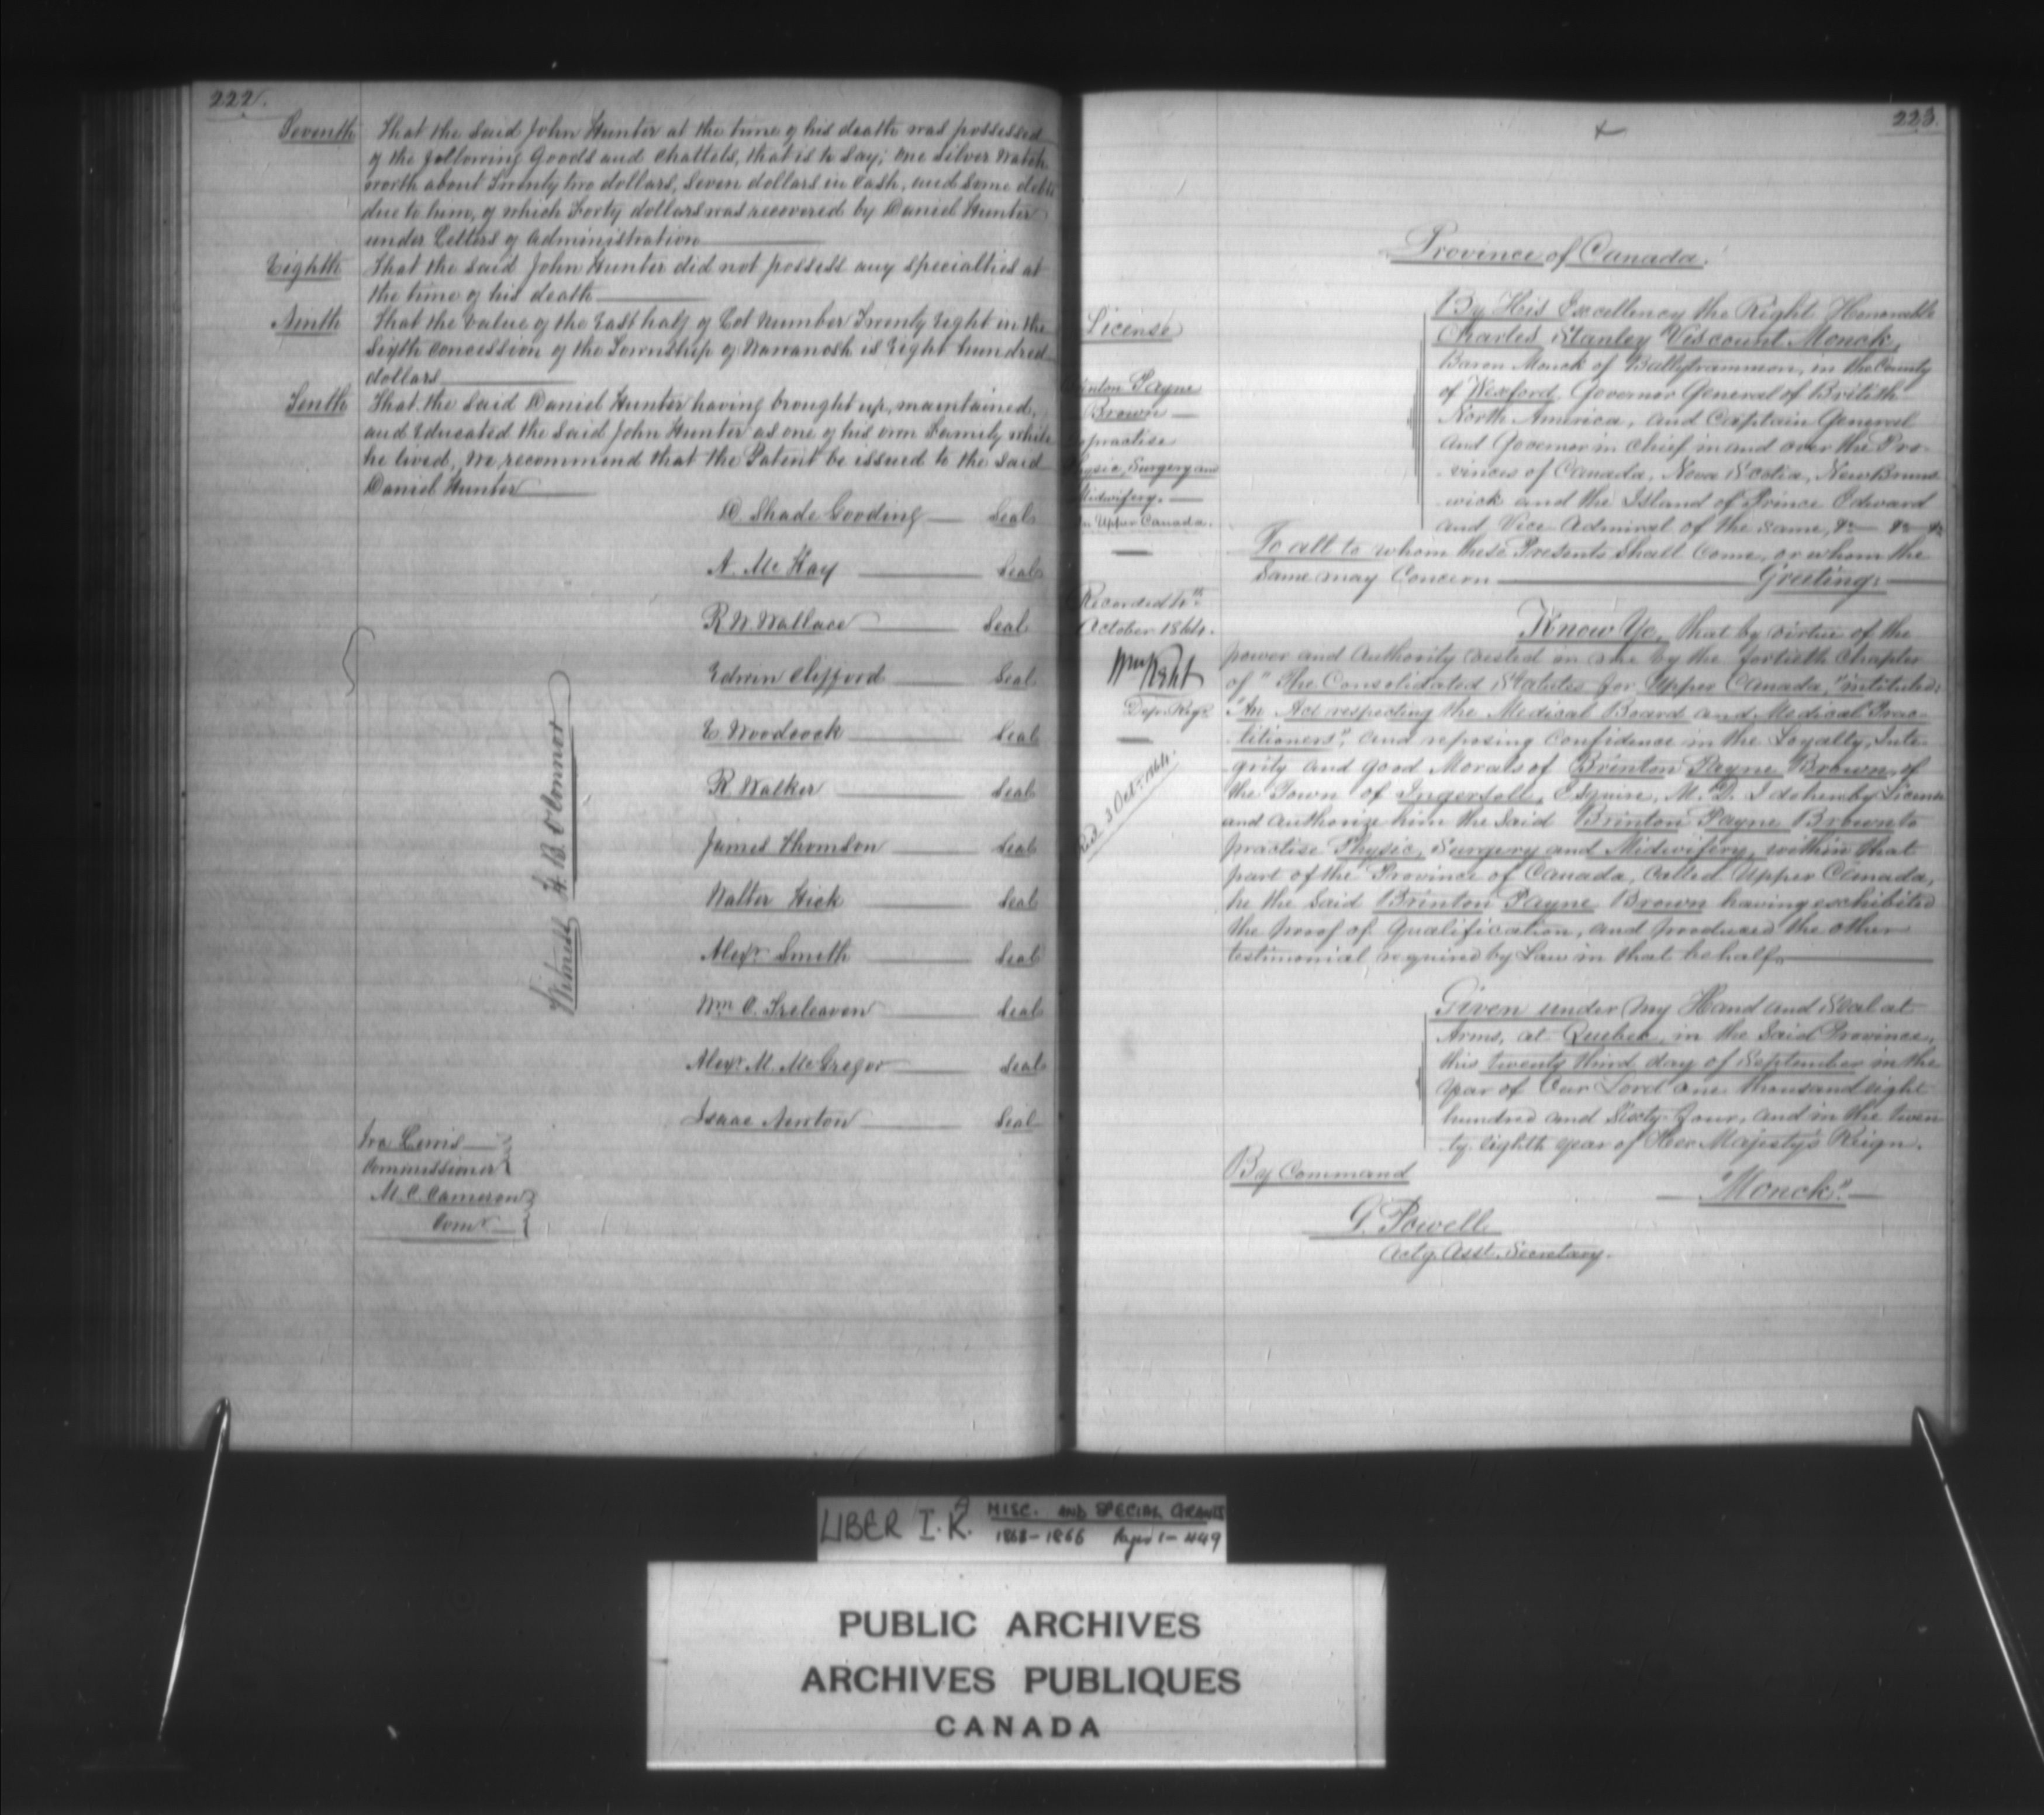 222.
Seventh That the said John Hunter at the time of his death was possessed
of the following Goods and Chattels, that is to say; one silver Watch
worth about Twenty two dollars, Seven dollars in Cash, and some debts
due to him, of which Forty dollars was recovered by Daniel Hunter
under Letters of Administration
Eighth That the said John Hunter did not possess any specialties at
the time of his death
Ninth That the value of the East half of Lot Number Twenty Eight in the
Sixth Concession of the Township of Wawanosh is Eight hundred
dollars
Tenth That the said Daniel Hunter having brought up, maintained,
and Educated the said John Hunter as one of his own Family while
he lived, We recommend that the Patent be issued to the said
Daniel Hunter
D. Shade Gooding Seal
A. McKay Seal
R W. Wallace Seal
Edwin Clifford Seal
E Woodcock Seal
R. Walker Seal
James Thomson Seal
Walter Hick Seal
Alexr Smith Seal
Wm C. Treleaven Seal
Alexr M. McGregor Seal
Isaac Newton Seal
Witness H. B. O'Connor
Ira Lewis
Commissioner
M. C. Cameron
Comr
223.
Province of Canada.
By His Excellency the Right Honorable
Charles Stanley Viscount Monck,
Baron Monck of Ballytrammon, in the County
of Wexford Governor General of British
North America, and Captain General
and Governor in Chief in and over the Pro-
vinces of Canada, Nova Scotia, New Bruns
wick and the Island of Prince Edward
and Vice Admiral of the same, &c &c &c
To all to whom these Presents shall Come, or whom the
same may Concern Greeting:
Know Ye, that by virtue of the
power and Authority vested in me by the fortieth Chapter
of "The Consolidated Statutes for Upper Canada," intituled:
"An Act respecting the Medical Board and Medical Prac-
titioners", and reposing confidence in the Loyalty, Inte-
grity and good Morals of Brinton Payne Brown, of
the Town of Ingersoll, Esquire, M. D. I do hereby License
and authorize him the said Brinton Payne Brown to
practise Physic, Surgery and Midwifery, within that
part of the Province of Canada, called Upper Canada,
he the said Brinton Payne Brown having exhibited
the proof of Qualification, and produced the other
testimonial required by Law in that behalf.
Given under my Hand and Seal at
Arms, at Quebec, in the said Province,
this twenty third day of September in the
year of Our Lord one thousand eight
hundred and Sixty-four, and in the twen
ty eighth year of Her Majesty's Reign.
By Command
"Monck"
G. Powell
Actg. Asst. Secretary.
License
Brinton Payne
Brown
to practise
Physic, Surgery and
Midwifery.
in Upper Canada.
October 1864.
Depy Regr
3 Octr 1864.
LIBER I. R. MISC. AND SPECIAL GRANTS
1863-1866 Pages 1-449
PUBLIC ARCHIVES
ARCHIVES PUBLIQUES
CANADA